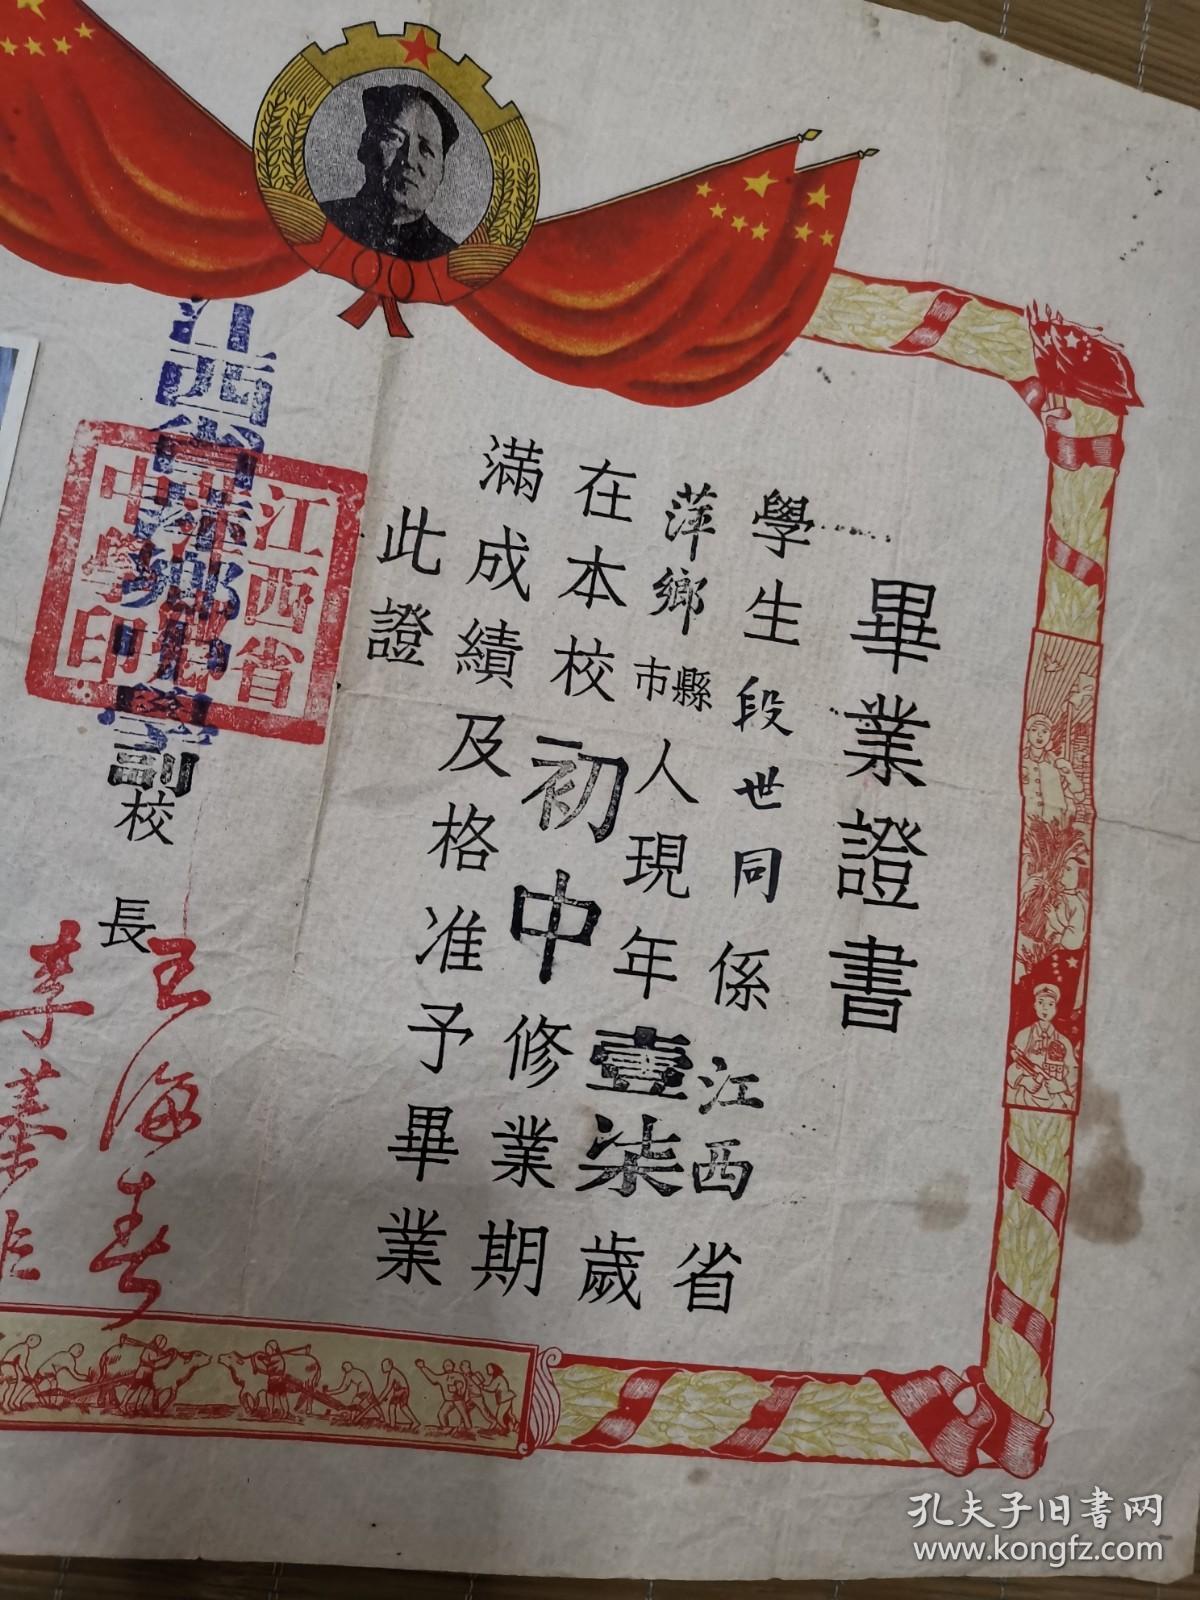 畢業證書
學生段世同係江西省
萍鄉縣市人現年壹柒歲
在本校初中修業期
滿成績及格准予畢業
此證
江西省萍鄉中學
副校長
王海春
江西省
中學印
孔夫子旧书网
www.kongfz.com